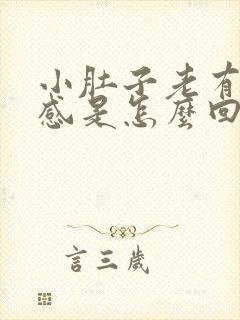 小肚子老有
感是怎麼回
言三歲